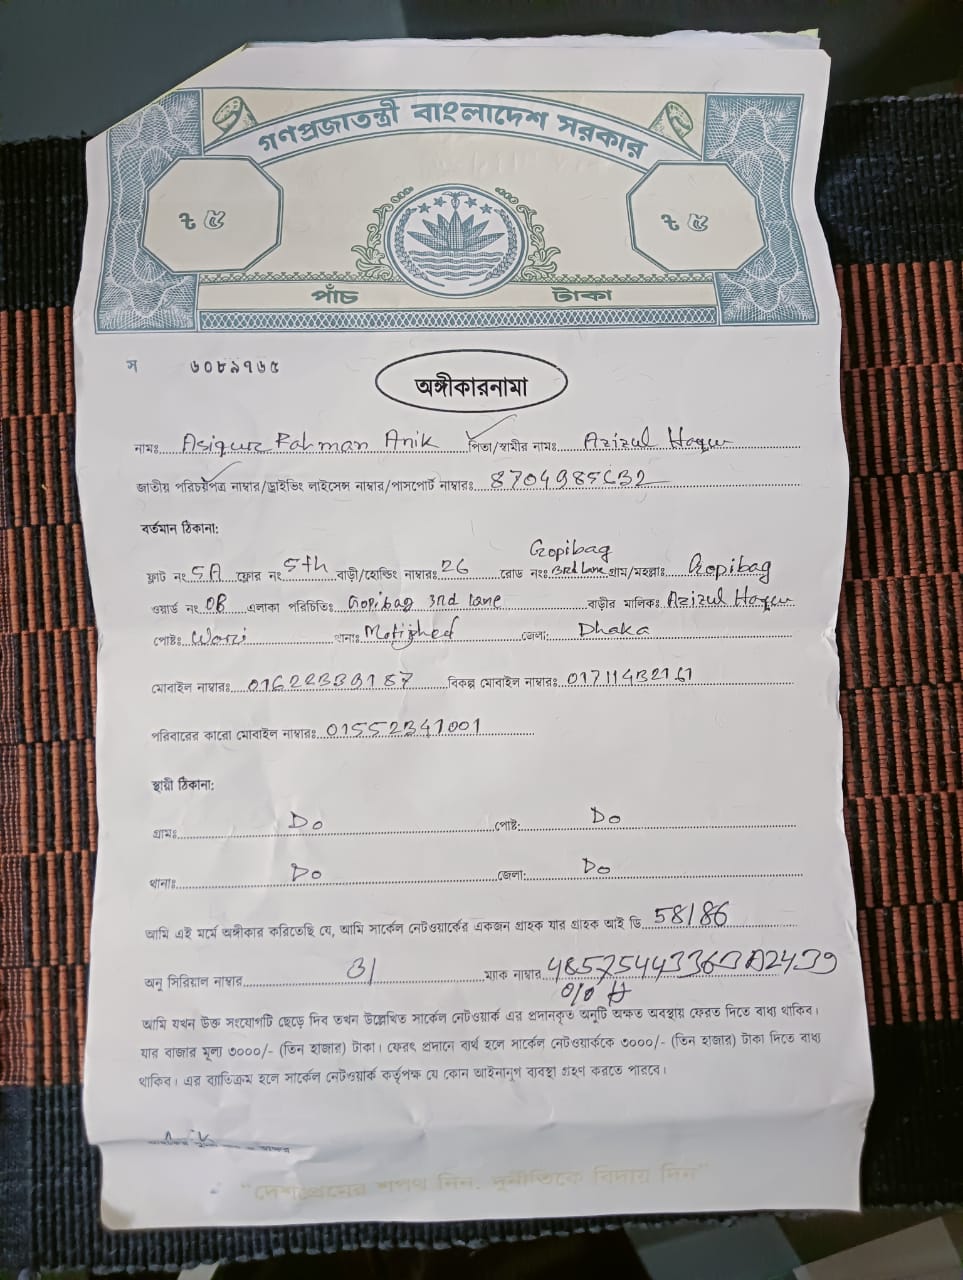 গণপ্রজাতন্ত্রী বাংলাদেশ সরকার
৳ ৫ ৳ ৫
পাঁচ টাকা
স ৬০৮৯৭৬৫
অঙ্গীকারনামা
নামঃ Asiqur Rahman Anik পিতা/স্বামীর নামঃ Azizul Hoque
জাতীয় পরিচয়পত্র নাম্বার/ড্রাইভিং লাইসেন্স নাম্বার/পাসপোর্ট নাম্বারঃ
বর্তমান ঠিকানা:
ফ্লাট নং 5A ফ্লোর নং 5th বাড়ী/হোল্ডিং নাম্বারঃ 26 রোড নংঃ Gopibag 3rd Lane গ্রাম/মহল্লাঃ Gopibag
ওয়ার্ড নং 08 এলাকা পরিচিতিঃ Gopibag 3rd lane বাড়ীর মালিকঃ Azizul Hoque
পোষ্টঃ Wari থানাঃ জেলা: Dhaka
মোবাইল নাম্বারঃ বিকল্প মোবাইল নাম্বারঃ
পরিবারের কারো মোবাইল নাম্বারঃ 01552341001
স্থায়ী ঠিকানা:
গ্রামঃ Do পোষ্ট: Do
থানাঃ Do জেলা: Do
আমি এই মর্মে অঙ্গীকার করিতেছি যে, আমি সার্কেল নেটওয়ার্কের একজন গ্রাহক যার গ্রাহক আই ডি 58186
অনু সিরিয়াল নাম্বার ম্যাক নাম্বার
আমি যখন উক্ত সংযোগটি ছেড়ে দিব তখন উল্লেখিত সার্কেল নেটওয়ার্ক এর প্রদানকৃত অনুটি অক্ষত অবস্থায় ফেরত দিতে বাধ্য থাকিব।
যার বাজার মূল্য ৩০০০/- (তিন হাজার) টাকা। ফেরৎ প্রদানে ব্যর্থ হলে সার্কেল নেটওয়ার্ককে ৩০০০/- (তিন হাজার) টাকা দিতে বাধ্য
থাকিব। এর ব্যতিক্রম হলে সার্কেল নেটওয়ার্ক কর্তৃপক্ষ যে কোন আইনানুগ ব্যবস্থা গ্রহণ করতে পারবে।
"দেশপ্রেমের শপথ নিন, দুর্নীতিকে বিদায় দিন"